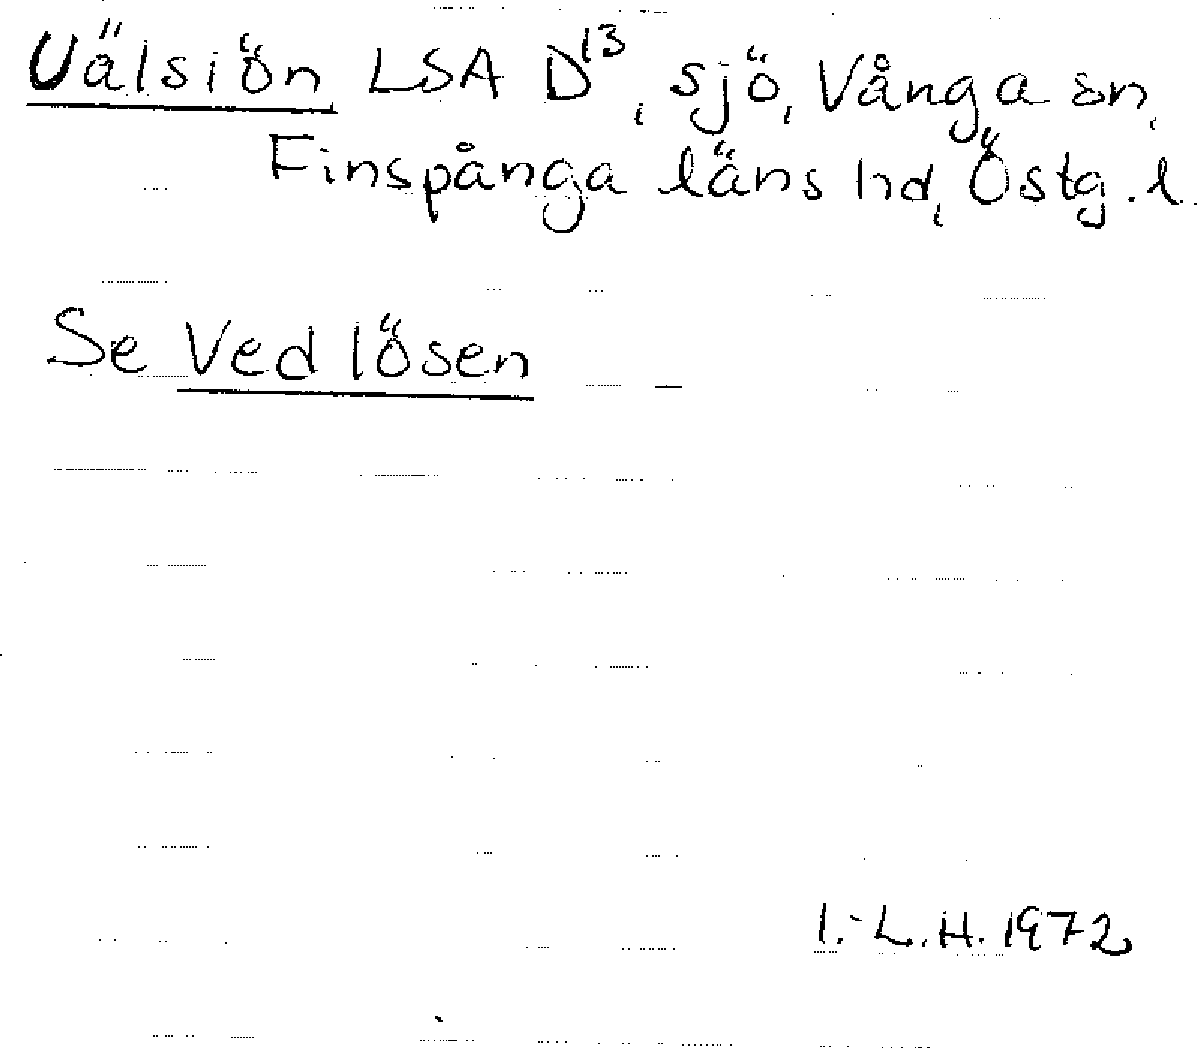 Uälsiön LSA D¹³, sjö, Vånga sn,
Finspånga läns hd, Östg. l.
Se Vedlösen
I.-L.H. 1972